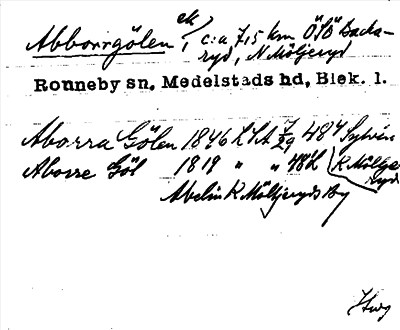 Abborrgölen, ek, c:a 7,5 km ÖSÖ Backa-
ryd, N Möljeryd
Ronneby sn, Medelstads hd, Blek. l.
Aborra Gölen 1846 LSA 7/29 484 Sylvén
Aborre Göl 1819 " " 48 K Möllje-
ryd
Abelin K Möljeryds By